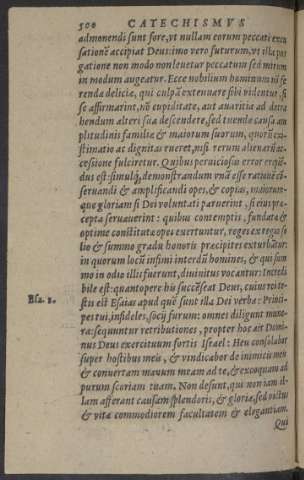 500 CATECHISMVS
admonendi sunt fore, vt nullam eorum peccati excu
sationē accipiat Deus: imo vero futurum, vt illa pur
gatione non modo non leuetur peccatum sed mirum
in modum augeatur. Ecce nobilium hominum nō fe
renda deliciæ, qui culpā extenuare sibi videntur, si
se affirmarint, nō cupiditate, aut auaritia ad detra
hendum alteri sua descendere, sed tuendæ causa am
plitudinis familiæ & maiorum suorum, quorū exi-
stimatio ac dignitas rueret, nisi rerum alienarū ac-
cessione fulciretur. Quibus perniciosus error eripiē-
dus est: simulq́; demonstrandum vnā esse rationē cō
seruandi & amplificandi opes, & copias, maiorum-
que gloriam si Dei voluntati paruerint, si eius præ-
cepta seruauerint: quibus contemptis, fundatæ &
optime constitutæ opes euertuntur, reges ex regio so
lio & summo gradu honoris præcipites exturbātur:
in quorum locū infimi interdū homines, & qui sum
mo in odio illis fuerunt, diuinitus vocantur: Incredi
bile est: quantopere his succēseat Deus, cuius rei te-
stis est Esaias apud quē sunt illa Dei verba: Princi-
pes tui, infideles, socij furum: omnes diligunt mune-
Esa. 1. ra: sequuntur retributiones, propter hoc ait Domi-
nus Deus exercituum fortis Israel: Heu consolabor
super hostibus meis, & vindicabor de inimicis meis
& conuertam manum meam ad te, & excoquam ad
purum scoriam tuam. Non desunt, qui non iam il-
lam afferant causam splendoris, & gloriæ, sed victus
& vitæ commodiorem facultatem & elegantiam.
Qui